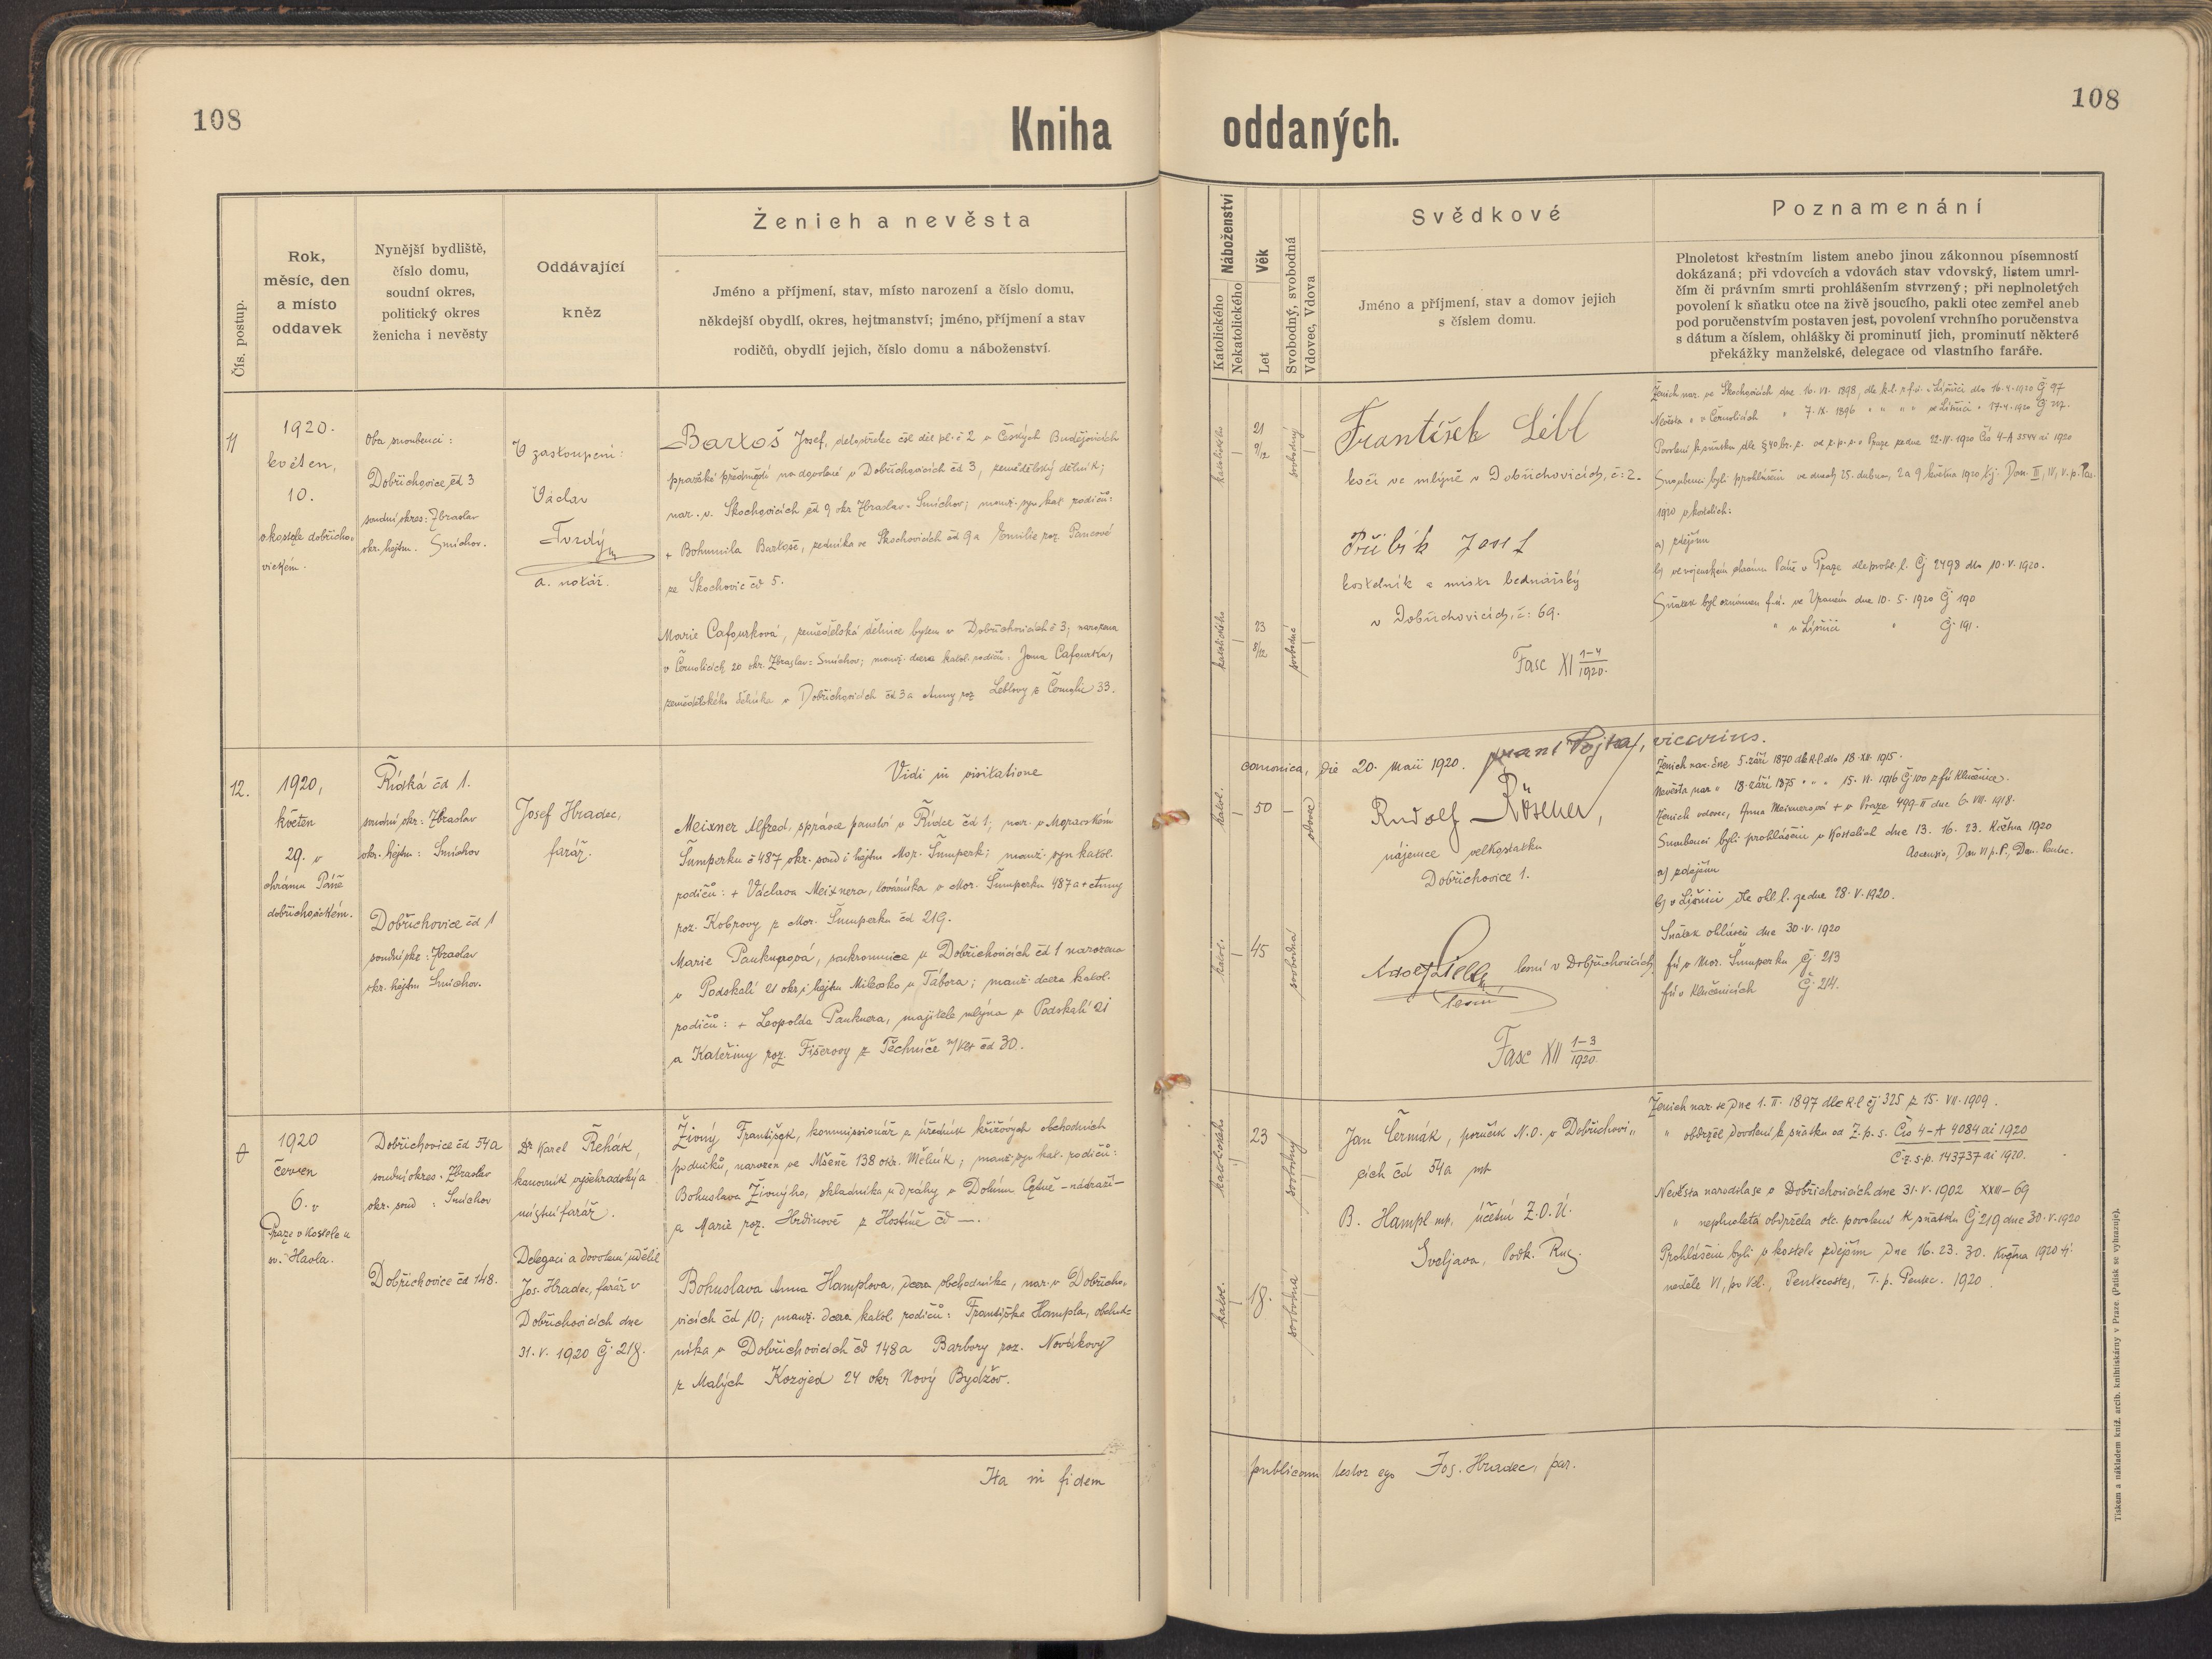 108
108
Kniha oddaných.
Čís. postup.
Rok,
měsíc, den
a místo
oddavek
Nynější bydliště,
číslo domu,
soudní okres,
politický okres
ženicha i nevěsty
Oddávající
kněz
Ženich a nevěsta
Jméno a příjmení, stav, místo narození a číslo domu,
někdejší obydlí, okres, hejtmanství; jméno, příjmení a stav
rodičů, obydlí jejich, číslo domu a náboženství.
Náboženství
Katolického
Nekatolického
Věk
Let
Svobodný, svobodná
Vdovec, Vdova
Svědkové
Jméno a příjmení, stav a domov jejich
s číslem domu.
Poznamenání
Plnoletost křestním listem anebo jinou zákonnou písemností
dokázaná; při vdovcích a vdovách stav vdovský, listem umrl-
čím či právním smrti prohlášením stvrzený; při neplnoletých
povolení k sňatku otce na živě jsoucího, pakli otec zemřel aneb
pod poručenstvím postaven jest, povolení vrchního poručenstva
s dátum a číslem, ohlášky či prominutí jich, prominutí některé
překážky manželské, delegace od vlastního faráře.
11
1920.
květen,
10.
v kostele dobřicho-
vickém.
Oba snoubenci:
Dobřichovice čd 3
soudní okres: Zbraslav
okr. hejtm. Smíchov.
V zastoupení:
Václav
Tvrdý
a. notář.
Bartoš Josef, dělostřelec čsl děl pl. č 2 v Českých Budějovicích
nar. v. Skochovicích čd 9 okr Zbraslav-Smíchov; manž. syn kat rodičů:
+ Bohumila Bartoše, zedníka ve Skochovicích čd 9 a Emilie roz. Pancové
ze Skochovic čd 5.
Marie Cafourková, zemědělská dělnice bytem v Dobřichovicích č 3; narozena
v Černolicích 20 okr. Zbraslav-Smíchov; manž. dcera katol. rodičů. Jana Cafourka,
zemědělského dělníka v Dobřichovicích čd 3 a Anny roz Leblovy z Černolic 33.
katolického
21
9/12
svobodný
katolického
23
8/12
svobodná
František Lébl
kočí ve mlýně v Dobřichovicích, č: 2.
Přibík Josef
kostelník a mistr bednářský
v Dobřichovicích, č: 69.
Fasc XI 1-4/1920.
Ženich nar. ve Skochovicích dne 16. VI. 1898, dle k.l. z f.ú. v Líšnici dto 16.4.1920 Čj 97
Nevěsta " v Černolicích " 7. IX. 1896 " " " ve Líšnici " 17.4.1920
Snoubenci byli prohlášeni ve dnech 25. dubna, 2 a 9 května 1920 tj. Dom. III, IV, V. p. Pas.
1920 v kostelích:
a) zdejším
b) ve vojenském chrámu Páně v Praze dle prohl. l. Čj 2498 dto 10. V. 1920.
Sňatek byl oznámen f.ú. ve Vraném dne 10. 5. 1920 Čj 190
" v Líšnici " Čj 191.
12.
1920,
květen
29. v
chrámu Páně
dobřichovickém.
Řídká čd 1.
soudní okr: Zbraslav
okr. hejtm: Smíchov
Dobřichovice čd 1
soudní okr: Zbraslav
okr. hejtm Smíchov.
Josef Hradec,
farář.
Vidi in visitatione canonica, die 20. Maii 1920. vicarius.
Meixner Alfred, správce panství v Řídce čd 1; nar. v Moravském
Šumperku č 487 okr. soud i hejtm Mor. Šumperk; manž. syn katol.
rodičů: + Václava Meixnera, továrníka v Mor. Šumperku 487 a + Anny
roz. Kobrovy z Mor. Šumperku čd 219.
Marie Pauknerová, soukromnice v Dobřichovicích čd 1 narozena
v Podskalí 21 okr i hejtm Milevsko u Tábora; manž. dcera katol.
rodičů: + Leopolda Pauknera, majitele mlýna v Podskalí 21
a Kateřiny roz. Fišerovy z Těchnice čd 30.
katol.
50
vdovec
katol.
45
svobodná
Rudolf Rösener,
nájemce velkostatku
Dobřichovice 1.
lesní v Dobřichovicích
lesní
Fasc XII 1-3/1920.
Ženich nar. dne 5. září 1870 dle k.l. dto 18. XII. 1915.
Nevěsta nar " 18. září 1875 " " " 15. VI. 1916 Čj 100 z fú Klučenice.
Ženich vdovec, Anna Meixnerová + v Praze 499-II dne 6. VII. 1918.
Snoubenci byli prohlášeni v kostelích dne 13. 16. 23. Května 1920
a) zdejším
b) v Líšnici dle ohl. l. ze dne 28. V. 1920.
Sňatek ohlášen dne 30. V. 1920
fú v Mor. Šumperku Čj 213
fú v Klučenicích Čj 214.
1920
červen
6. v
Praze v kostele u
sv. Havla.
Dobřichovice čd 54a
soudní okres. Zbraslav
okr. soud : Smíchov
Dobřichovice čd 148.
Dr Karel Řehák,
kanovník vyšehradský a
místní farář.
Delegaci a dovolení udělil
Jos. Hradec, farář v
Dobřichovicích dne
31. V. 1920 Čj 218.
Živný František, kommissionář a úředník křížových obchodních
podniků, narozen ve Mšeně 138 okr. Mělník; manž. syn kat. rodičů:
Bohuslava Živného, skladníka u dráhy v Dolním Cetně - nádraží -
a Marie roz. Hrdinové z Hostině čd —.
Bohuslava Anna Hamplova, dcera obchodníka, nar. v Dobřicho-
vicích čd 10; manž. dcera katol. rodičů: Františka Hampla, obchod-
níka v Dobřichovicích čd 148 a Barbory roz. Novákovy
z Malých Kozojed 24 okr Nový Bydžov.
katolického
23
svobodný
katol.
18.
svobodná
Jan Čermák, poručík N.O. v Dobřichovi-
cích čd 54a mp
B. Hampl mp. účetní Z.O.Ú.
Svaljava, Podk. Rus.
Ženich nar. se dne 1. II. 1897 dle k.l čj 325 z 15. VII. 1909.
" obdržel dovolení k sňatku od Z. p. s. Čís 4-A 4084 ai 1920
Č.z.s.p. 143737 ai 1920.
Nevěsta narodila se v Dobřichovicích dne 31. V. 1902 XXIII-69
" neplnoletá obdržela otc. povolení k sňatku Čj 219 dne 30. V. 1920
Prohlášeni byli v kostele zdejším dne 16. 23. 30. Května 1920 tj.
neděle VI, po Vel., Pentecostes, I. p. Pentec. 1920.
Ita in fidem publicam testor ego Jos. Hradec, par.
Tiskem a nákladem kníž. arcib. knihtiskárny v Praze. (Patisk se vyhrazuje).